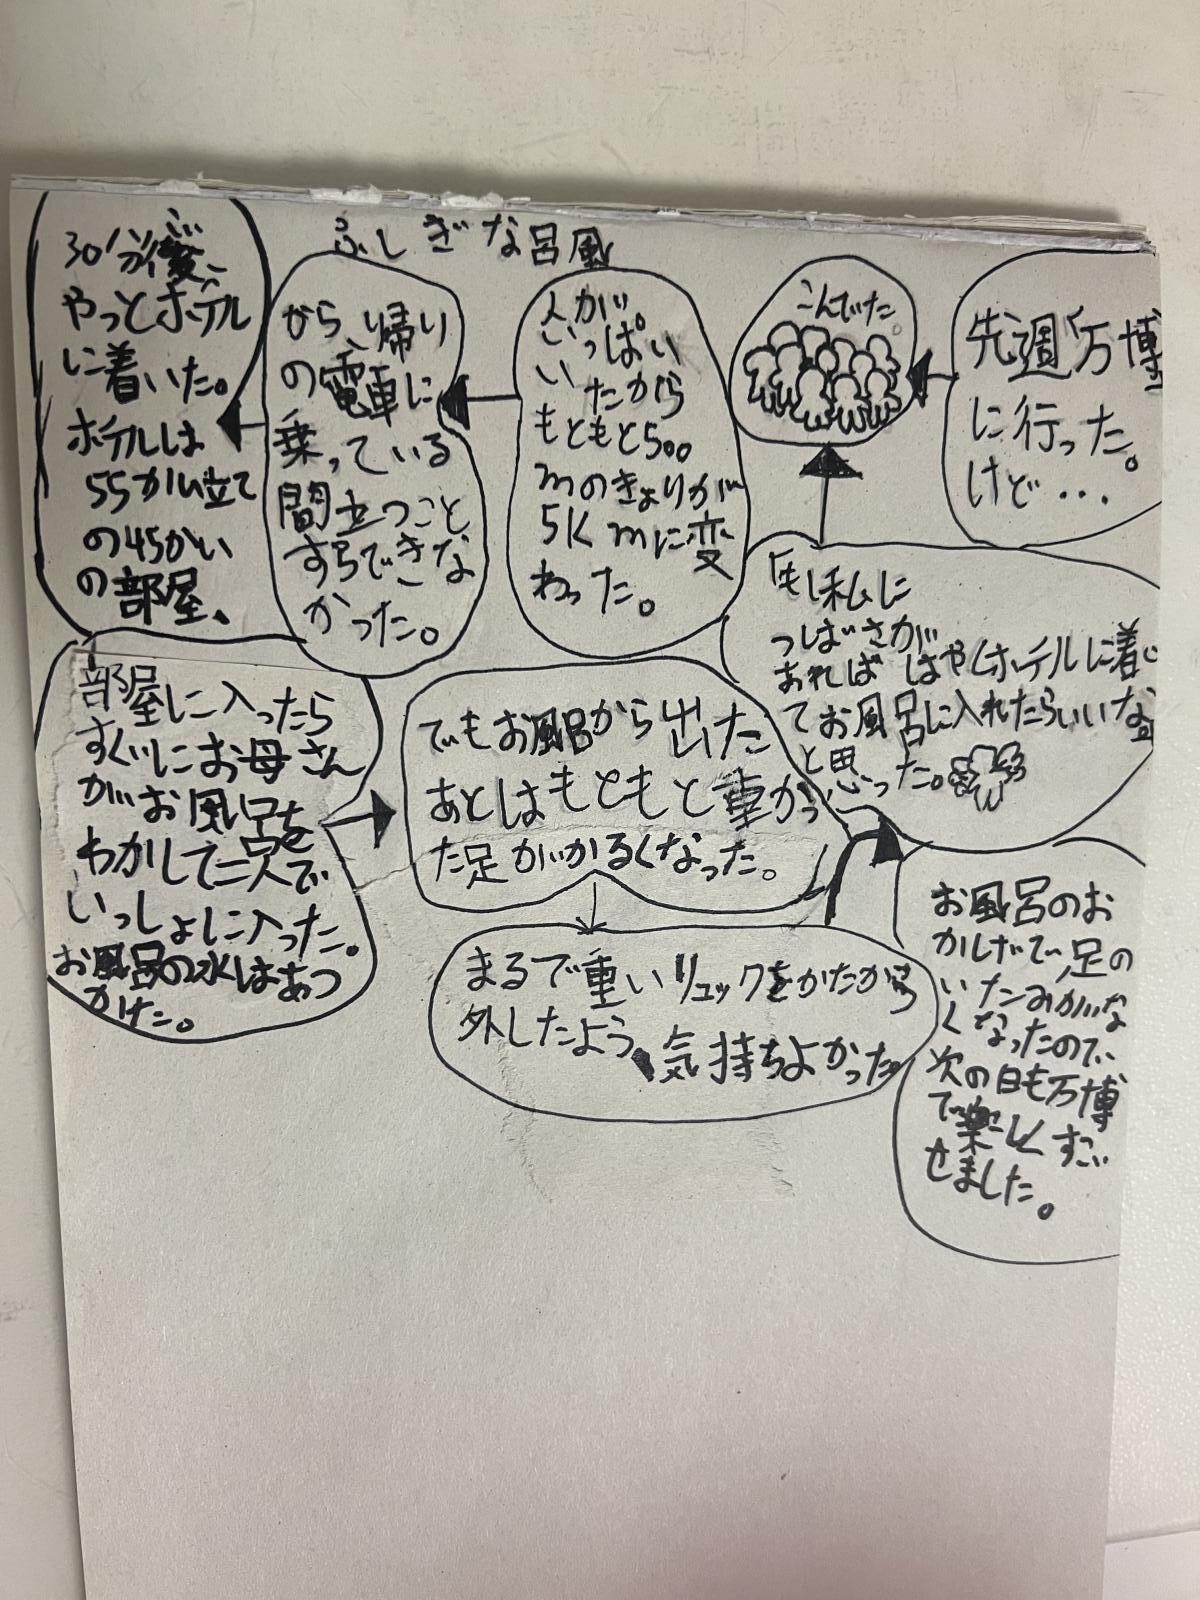 ふしぎな呂風
先週万博
に行った。
けど…
こんでた
人が
いっぱい
いたから
もともと500
mのきょりが
5Kmに変
わった。
から、帰り
の電車に
乗っている
間立つこと
すらできな
かった。
30分後、
やっとホテル
に着いた。
ホテルは
55かい立て
の45かい
の部屋、
部屋に入ったら
すぐにお母さん
がお風呂を
わかして二人で
いっしょに入った。
お風呂の水はあつ
かけた。
でもお風呂から出た
あとはもともと重かっ
た足がかるくなった。
まるで重いリュックをかたから
外したよう、気持ちよかった
「もし私に
つばさが
あれば はやくホテルに着い
てお風呂に入れたらいいな」
と思った。
お風呂のお
かげで、足の
いたみがな
くなったので、
次の日も万博
で楽しくすご
せました。